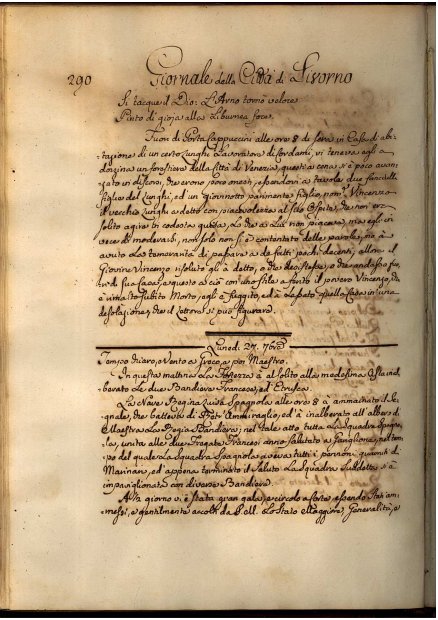 290 Giornale della Città di Livorno
Si tacque il Dio: L'Arno tornò veloce
Pinto di gioja alla Liburnea foce.
Fuori di Porta Cappuccini alle ore 8 di sera in Casa di abi-
tazione di un certo Lunghi Lavoratore di Cordami, vi teneva agli a
dozzina un forestiero della Città di Venezia, questi a cena s'è poco avan-
zato in discorsi, che erono poco onesti, essendovi a tavola due fanciulle
figlie del Lunghi, ed un giovinotto parimente figlio, Vincenzo
il vecchio Lunghi a detto con piacevolezza al suo Ospite, che non era
solito agire in codesta guisa, Lo che a Lui non piaceva, ma egli in
vece di moderarsi, non solo non si è contentato delle parole, ma à
avuto La temerarità di passare a de fatti pochi decenti, allora il
Giovine Vincenzo risoluto gli à detto, o che decistesse, o che andasse fuo-
ri di sua Casa, a questo à ciò con uno stile a ferito il povero Vincenzo, che
è rimasto subito Morto, egli è fuggito, ed à Lasciato quella Casa in una
desolazione, che il Lettore si può figurare.
Lunedì 27. 7bre
Tempo chiaro, e Vento a Greco, e poi Maestro.
In questa mattina La Fortezza à al solito alla medesima Asta inal-
berato Le due Bandiere Francese, ed Etrusca.
La Nave Regina Luisa Spagnola alle ore 8 à ammainato il Se-
gnale, che batteva di Ammiraglio, ed à inalberato all'albero di
Maestra La Regia Bandiera; nel tale atto tutta La Squadra Spagno-
la, unita alle due Fregate Francesi anno salutato a Ganglione, nel tem-
po del quale La Squadra Spagnola aveva tutti i pennoni guarniti di
Marinari, ed appena terminato il saluto La Squadra suddetta s'è
impaviglionata con diverse Bandiere.
A Mezzo giorno vi è stata gran gala, e circolo a Corte, essendo stati am-
messi, e gentilmente accolti da S. M. Lo Stato Maggiore, Generalità, e